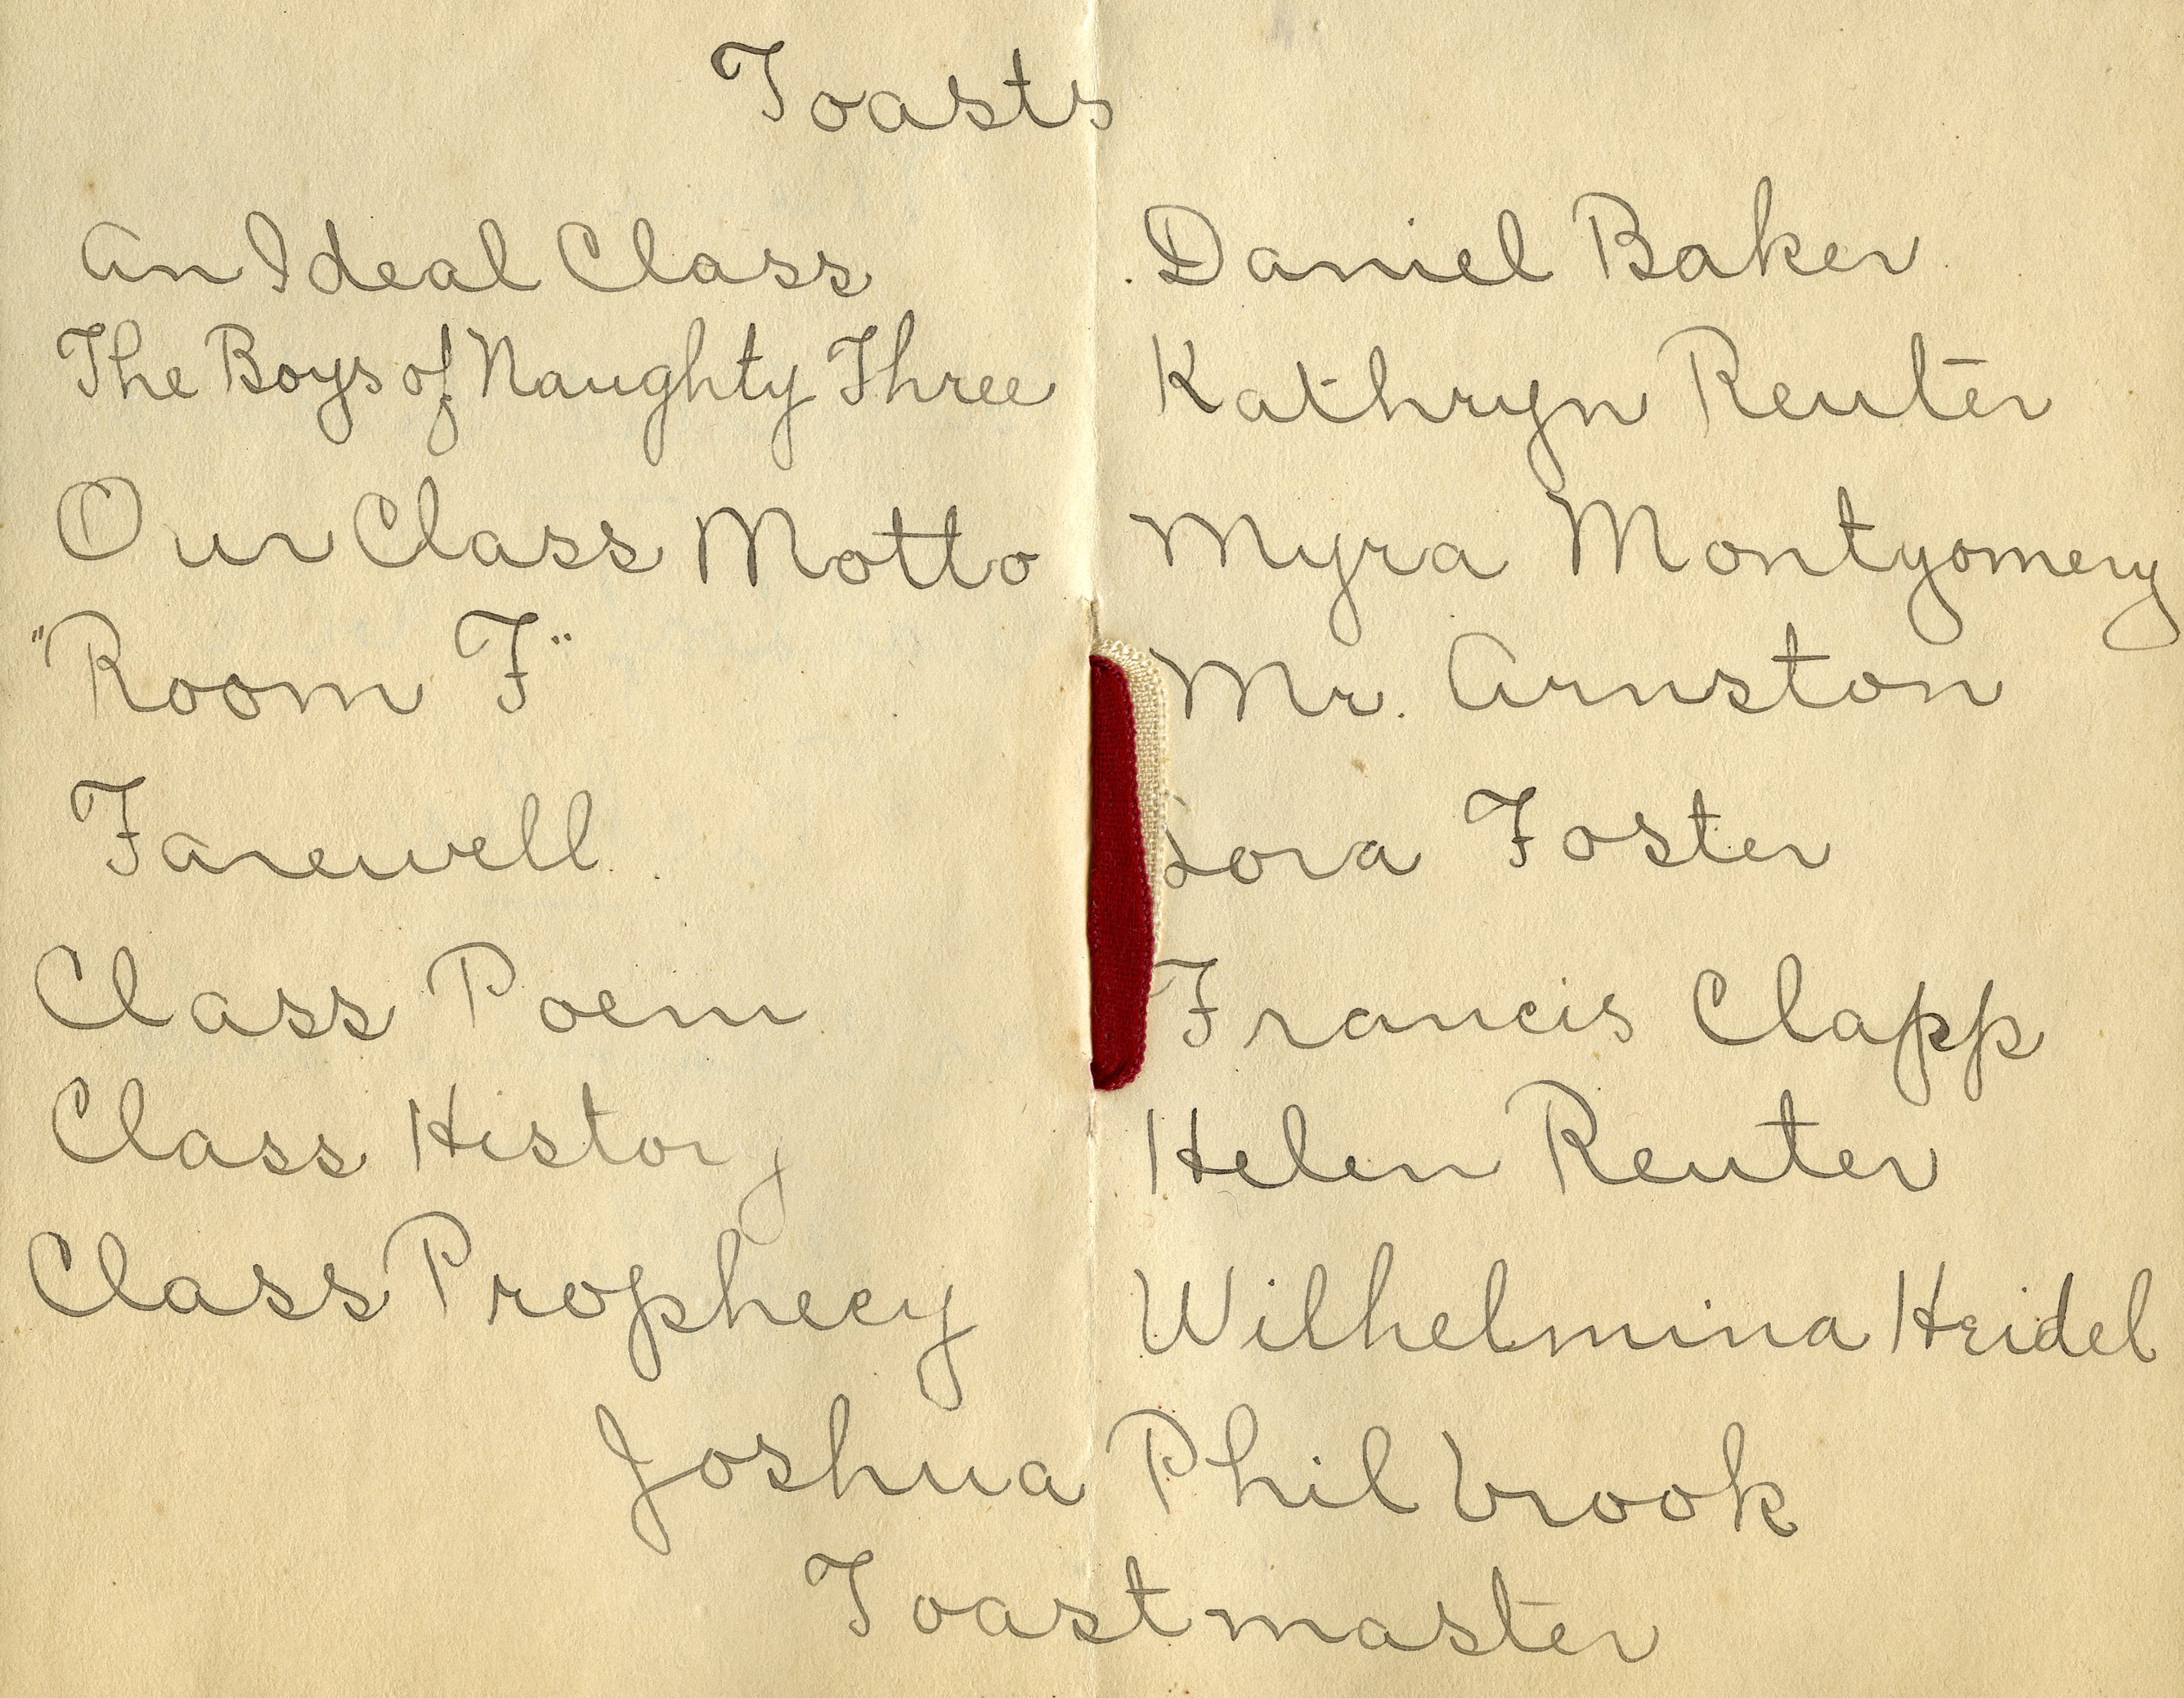 Toasts
An Ideal Class Daniel Baker
The Boys of Naughty Three Kathryn Reuter
Our Class Motto Myra Montgomery
"Room F" Mr. Arnston
Farewell. Lora Foster
Class Poem Francis Clapp
Class History Helen Reuter
Class Prophecy Wilhelmina Heidel
Joshua Philbrook
Toastmaster